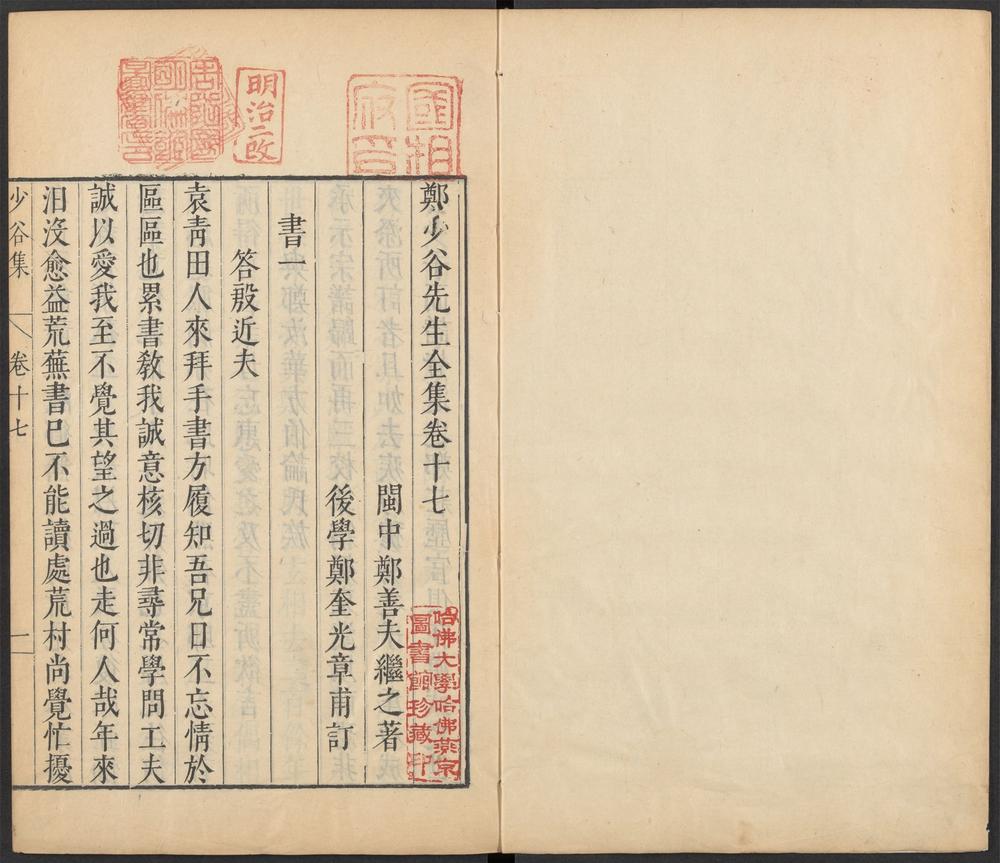 鄭少谷先生全集卷十七
閩中鄭善夫繼之著
後學鄭奎光章甫訂
書一
答殷近夫
袁青田人來拜手書方履知吾兄日不忘情於
區區也累書敎我誠意核切非尋常學問工夫
誠以愛我至不覺其望之過也走何人哉年來
汨沒愈益荒蕪書已不能讀處荒村尚覺忙擾
少谷集 卷十七 一
明治二改
哈佛大學哈佛燕京
圖書館珍藏印